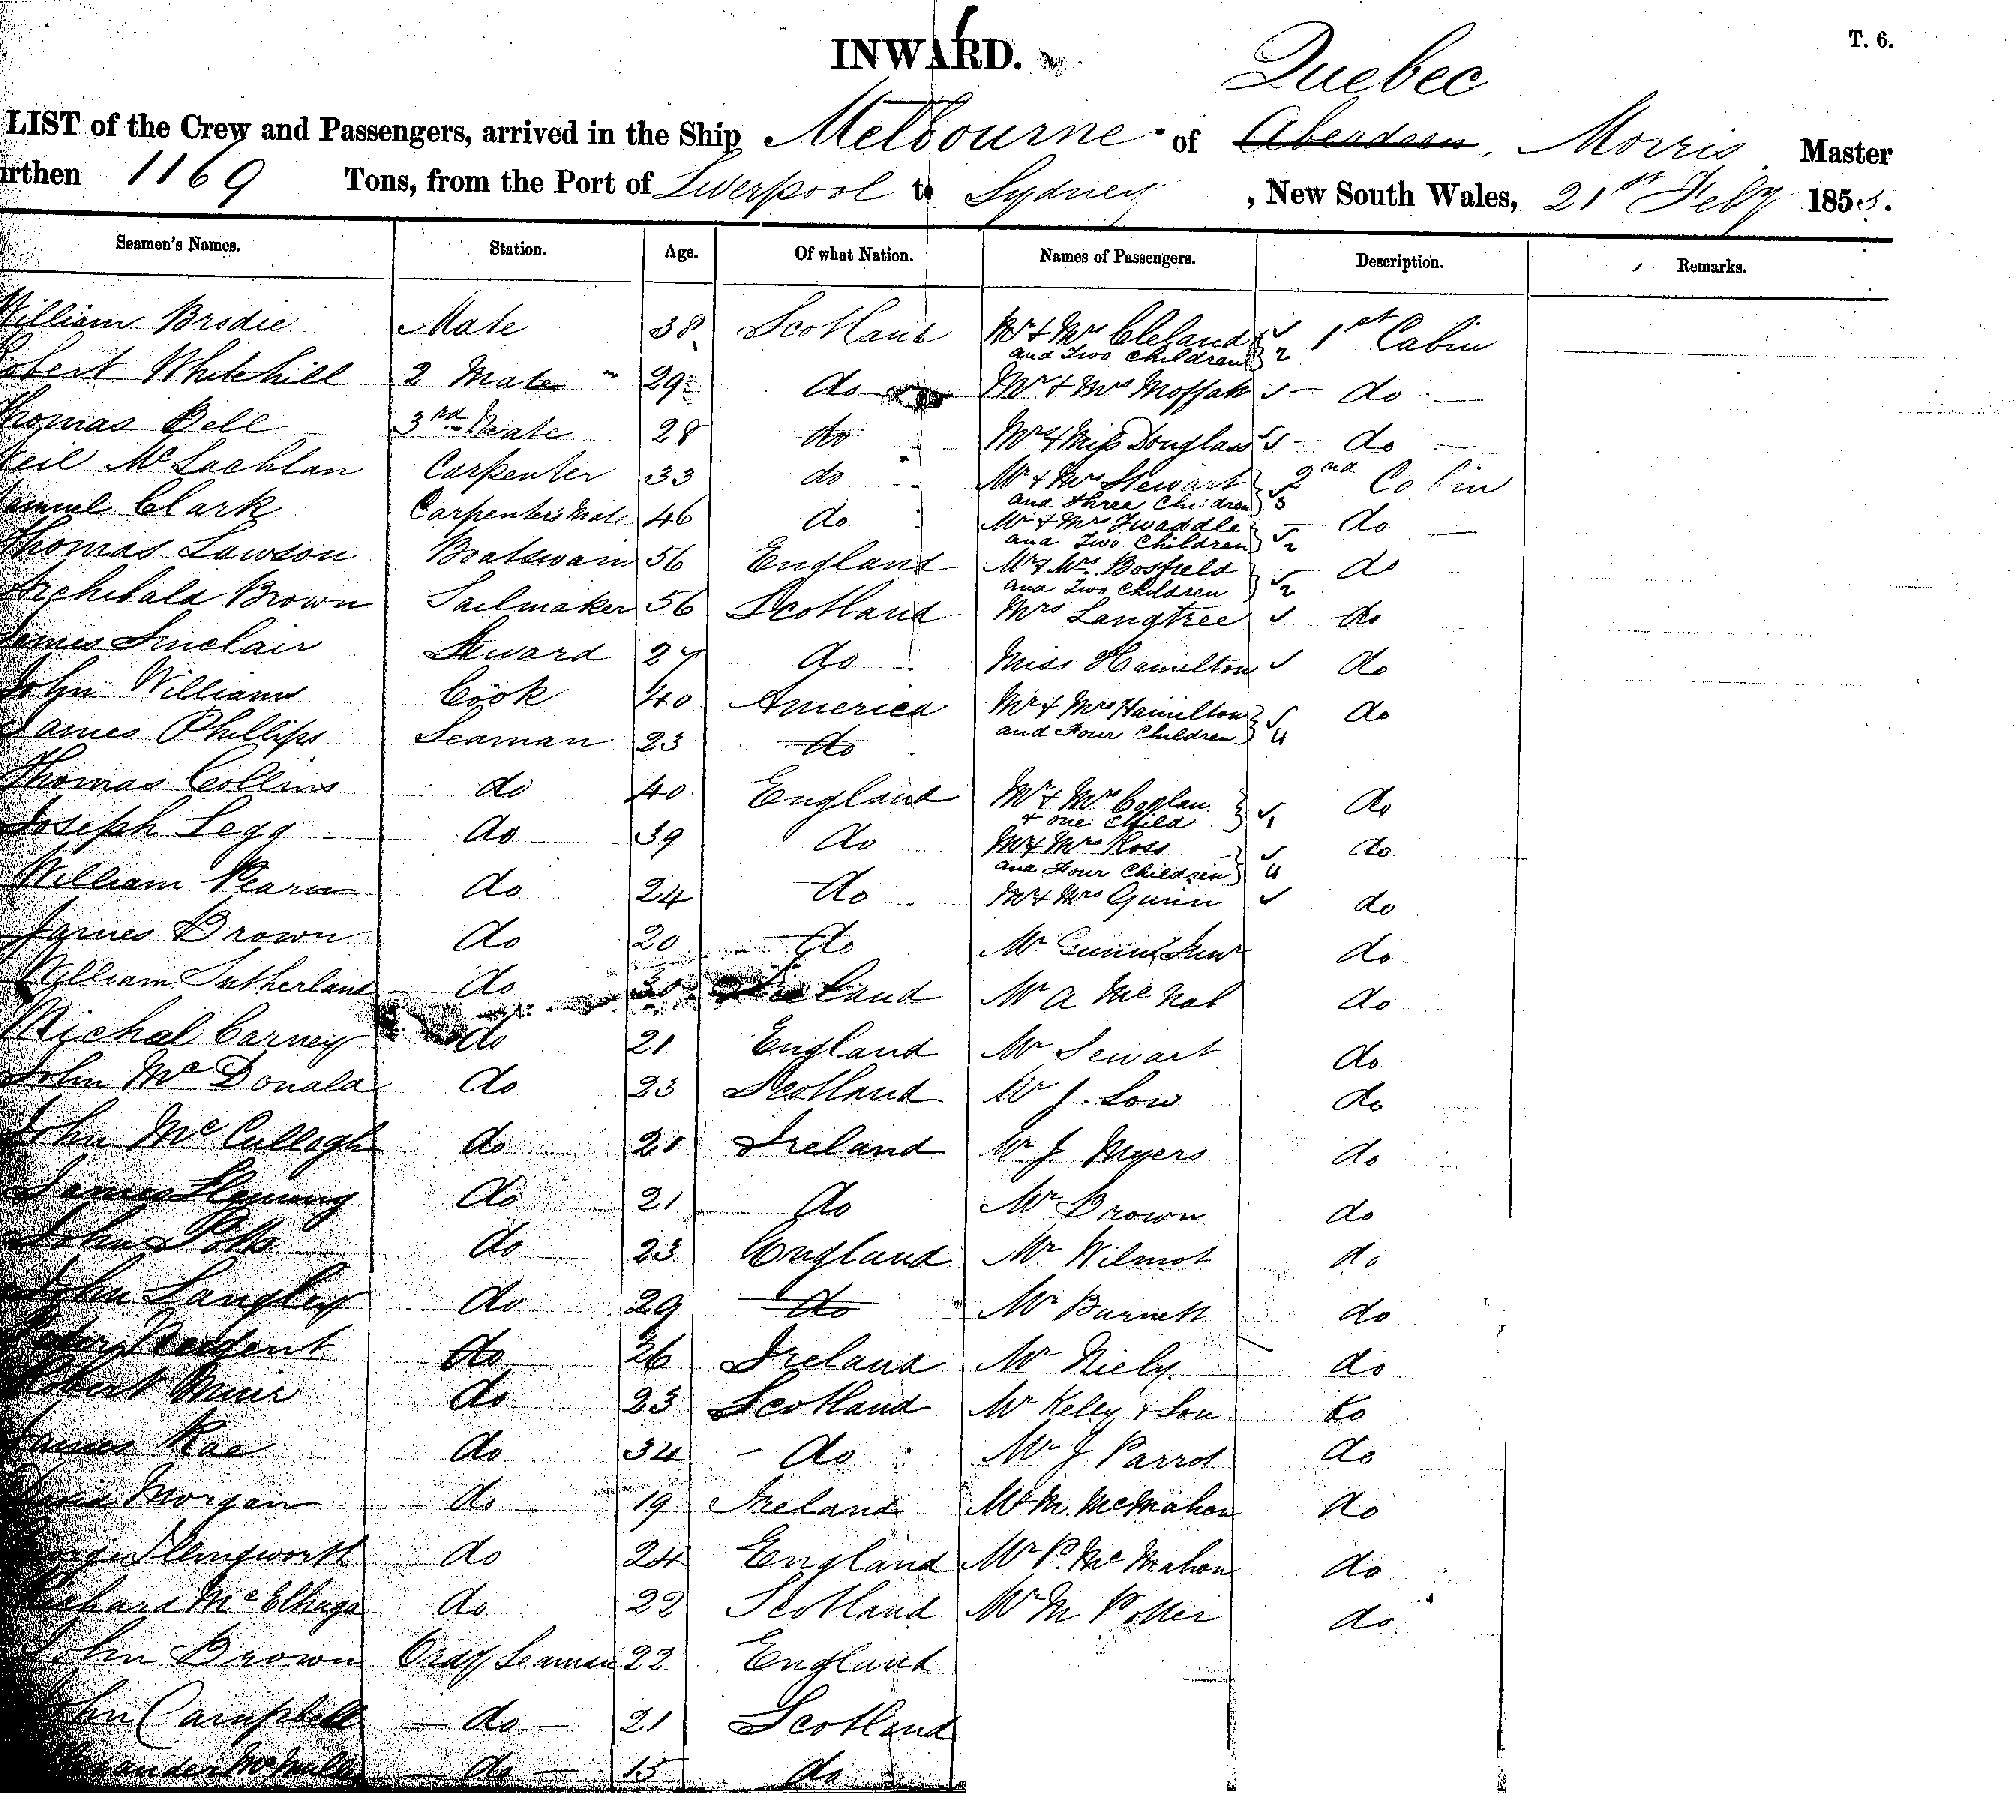 INWARD.
T. 6.
Quebec
LIST of the Crew and Passengers, arrived in the Ship Melbourne of Aberdeen, Morris Master
urthen 1169 Tons, from the Port of Liverpool to Sydney, New South Wales, 21st Feby 185
Seamen's Names. Station. Age. Of what Nation. Names of Passengers. Description. Remarks.
William Brodie Mate 38 Scotland Mr & Mrs Cleland and Two Children 2 1st Cabin
Robert Whitehill 2 Mate 29 do Mr & Mrs Moffatt do
Thomas Bell 3rd Mate 28 do Mr & Miss Douglass do
Neil McLachlan Carpenter 33 do Mr & Mrs Stewart and three Children 3 2nd Cabin
Samuel Clark Carpenters Mate 46 do Mr & Mrs Twaddle and Two Children 2 do
Thomas Lawson Boatswain 56 England Mr & Mrs Bosfield and Two Children 2 do
Archibald Brown Sailmaker 56 Scotland Mrs Langtree do
James Sinclair Steward 27 do Miss Hamilton do
John Williams Cook 40 America Mr & Mrs Hamilton and Four Children 4 do
James Phillips Seaman 23 do
Thomas Collins do 40 England Mr & Mrs Coplan & one Child 1 do
Joseph Legg do 39 do Mr & Mrs Ross and Four Children 4 do
William do 24 do Mr & Mrs Gunn do
James Brown do 20 do Mr Gunn Junr do
William Sutherland do Mr A McNab do
Michal Carney do 21 England Mr Sewart do
John McDonald do 23 Scotland Mr J. Low do
John McCullogh do 21 Ireland Mr J Myers do
James Fleming do 21 do Mr Brown do
John Potts do 23 England Mr Wilmot do
John Langley do 29 do Mr Burnett do
do 26 Ireland Mr Niely do
Robert Muir do 23 Scotland Mr Keley & Son do
James Rae do 34 do Mr J Parrot do
Morgan do 19 Ireland Mr M. McMahon do
do 24 England Mr P. McMahon do
Richard do 22 Scotland Mr M Potter do
John Brown Ordy Seaman 22 England
John Campbell do 21 Scotland
Alexander do 15 do